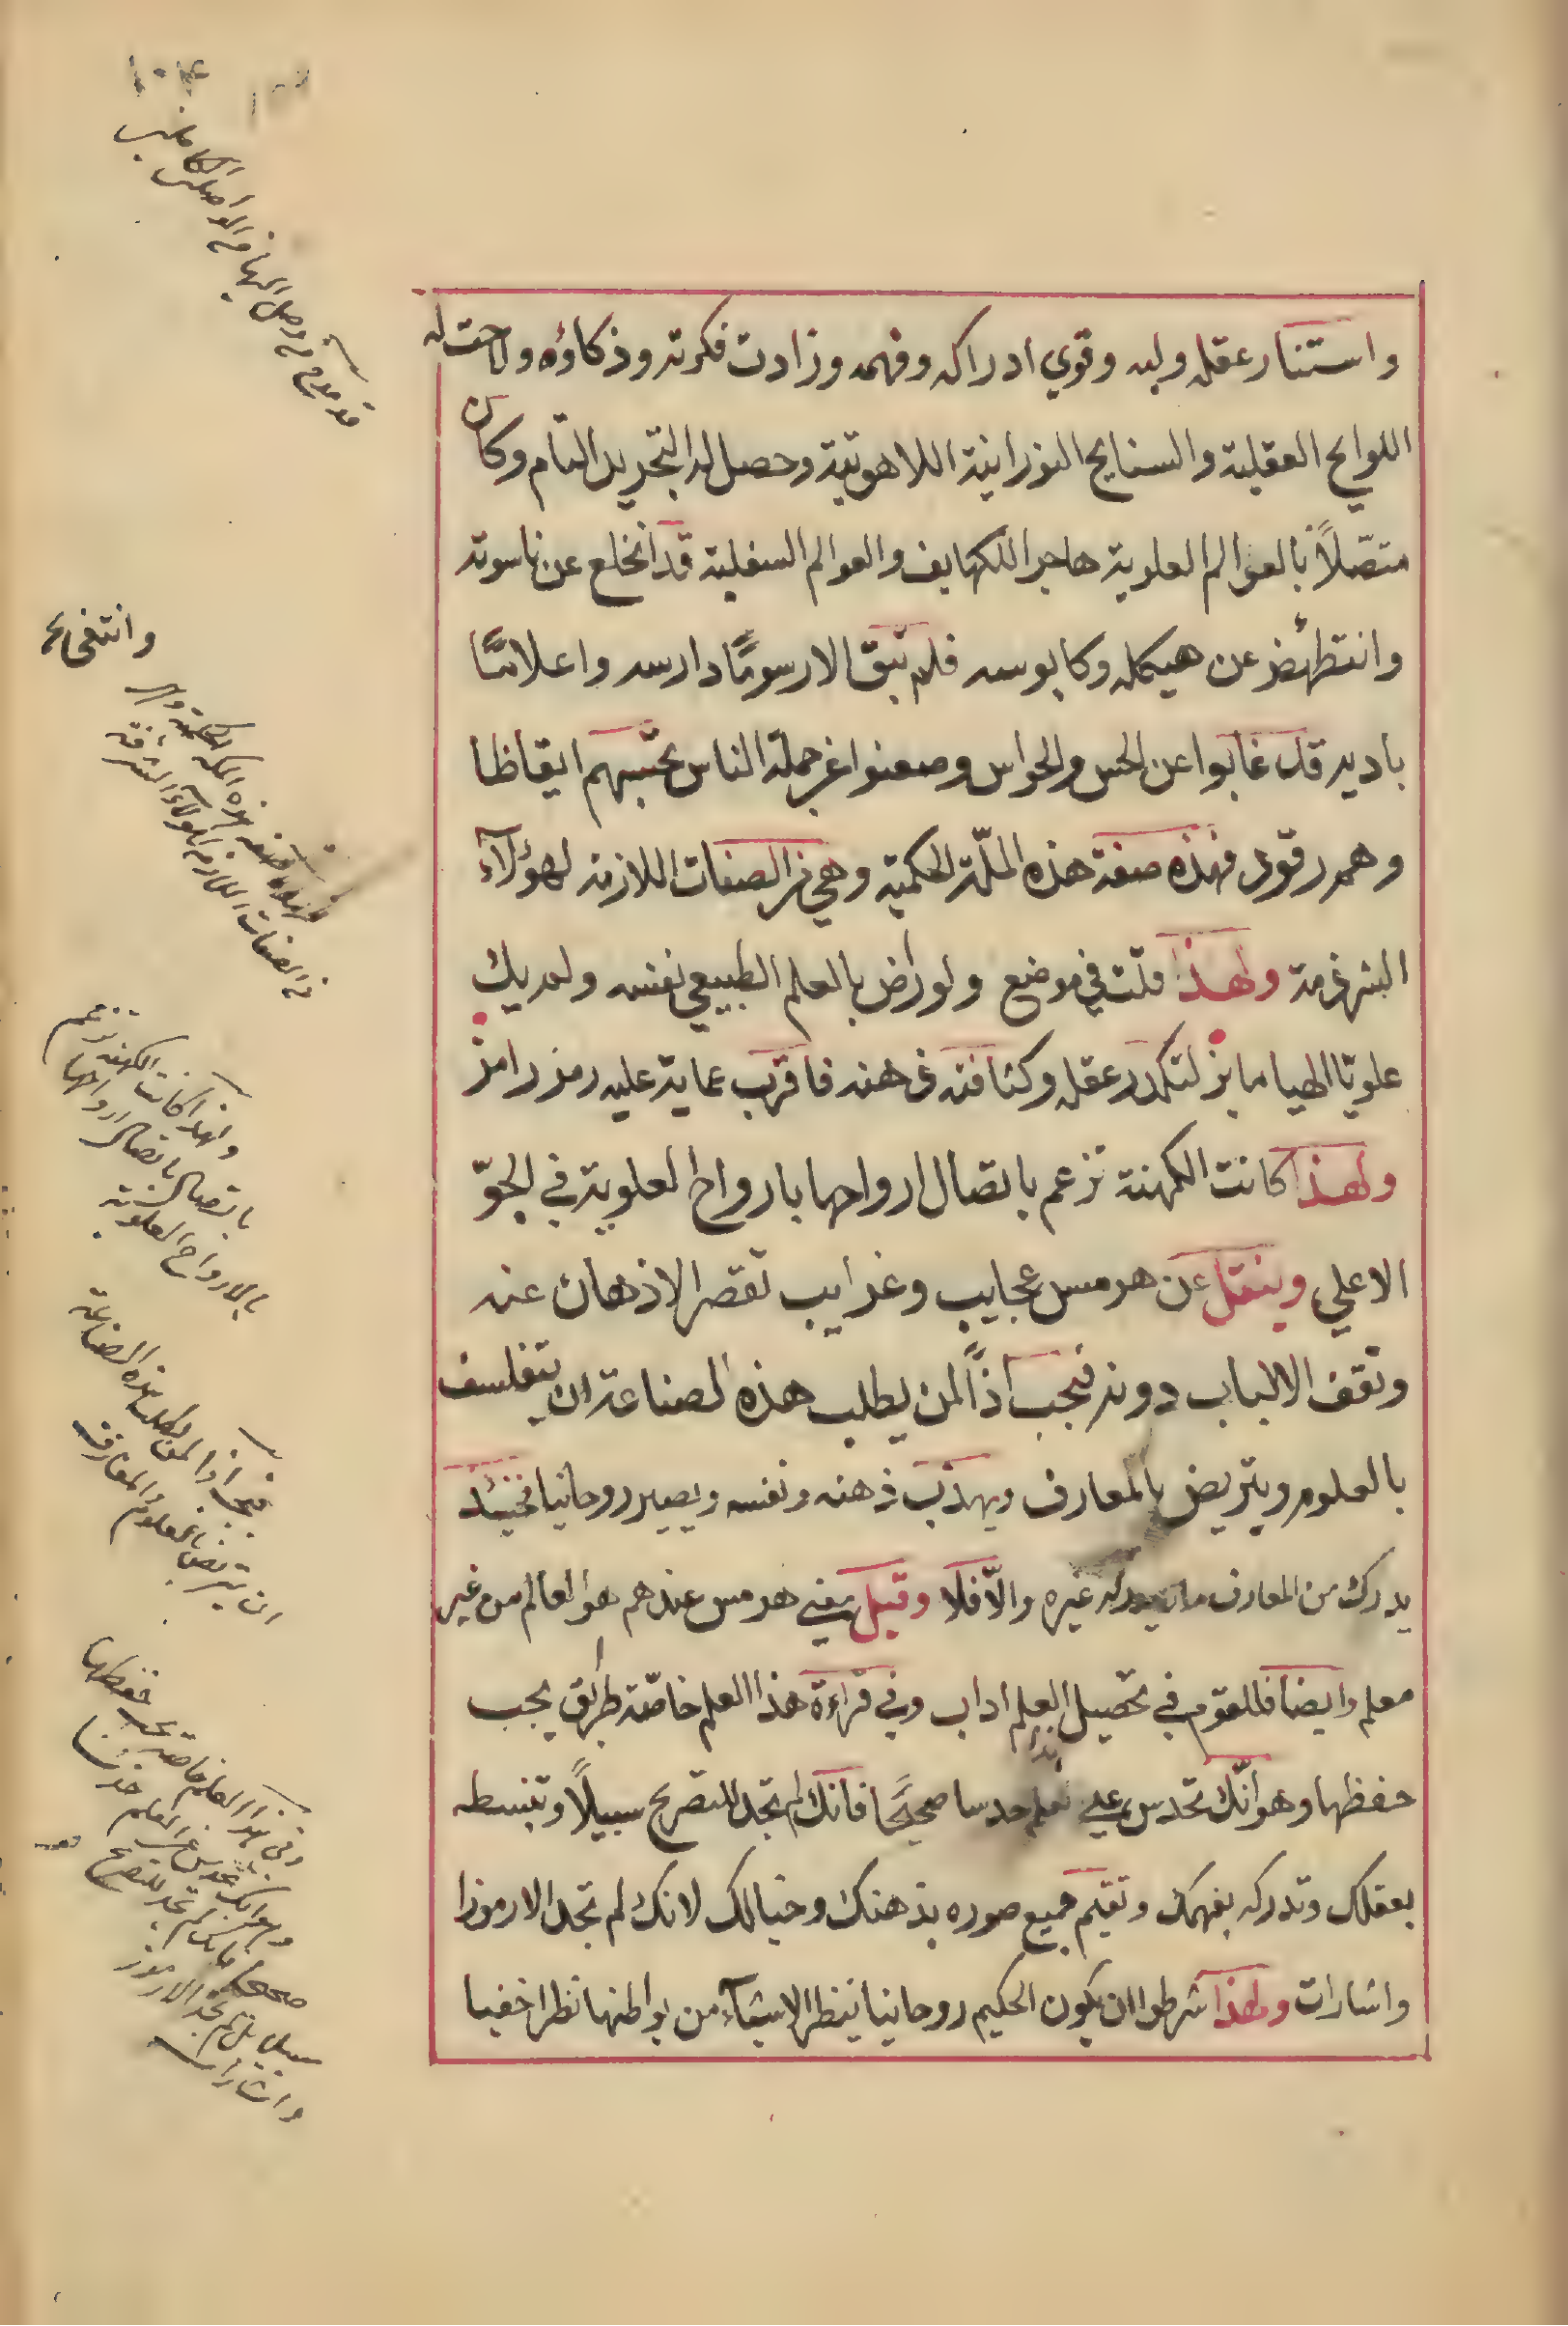 واستنار عقله ولبه وقوي ادراكه وفهمه وزادت فكرته وذكاؤه ولاحت له
اللوايح العقلية والسنايح النورانية اللاهوتية وحصل له التجريد التام وكان
متصّلاً بالعوالم العلوية هاجرا للكهايف والعوالم السفلية قد انخلع عن ناسوته
وانتهض عن هيكله وكابوسه فلم تبق الا رسومًا دارسه واعلامًا
باديه قد غابوا عن الحس والحواس وصعنوا عن جملة الناس تحسبهم ايقاظا
وهم رقود فهذه صفة هذه الملّة الحكمية وهي من الصفات اللازمة لهؤلآء
ولهذا قلت في موضع ولو راض بالعلم الطبيعي نفسه ولم يك
علويا الهيا ما بز لتكدر عقله وكثافة ذهنه فاقرب عماية عليه رمز رامز
ولهذا كانت الكهنة تزعم باتصال ارواحها بارواح العلوية في الجوّ
الاعلي وينقل عن هرمس عجايب وغرايب تقصر الاذهان عنه
وتقف الالباب دونه فيجب اذاً لمن يطلب هذه الصناعة ان يتفلسف
بالعلوم ويتريض بالمعارف ويهذب ذهنه ونفسه ويصير روحانيا فحينئذ
يدرك من المعارف ما لا يدركه غيره والّا فلا وقيل معني هرمس عندهم هو العالم من غير
معلم وايضا فللقوم في تحصيل العلم اداب وفي قراءة هذا العلم خاصّة طريق يجب
حفظها وهو انّك تحدس علي العلم حدسا صحيحًا فانك لم تجد للتصريح سبيلاً وتبسطه
بعقلك وتدركه بفهمك وتقيم جميع صوره بذهنك وخيالك لانك لم تجد الا رموزا
واشارات ولهذا شرطوا ان يكون الحكيم روحانيا ينظر الاشيآء من بواطنها نظرا خفيا
وانتفى
ولهذا كانت الكهنة تزعم
باتصال ارواحها
بالارواح العلوية
فيجب اذا لمن يطلب هذه الصناعة
ان يتريض بالعلوم والمعارف
وفي هذا العلم خاصة يجب حفظها
وهو انك تحدس على العلم حدسا
صحيحا فانك لم تجد للتصريح
سبيلا بل لم تجد الا رموز
واشارات